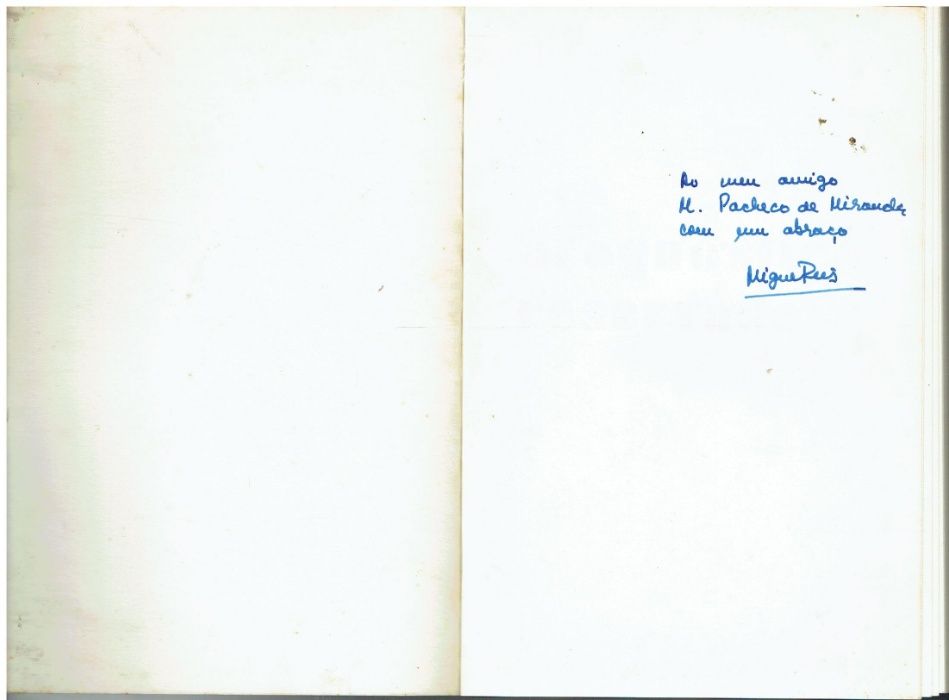 Ao meu amigo
M. Pacheco de Miranda
com um abraço
Miguel Reis